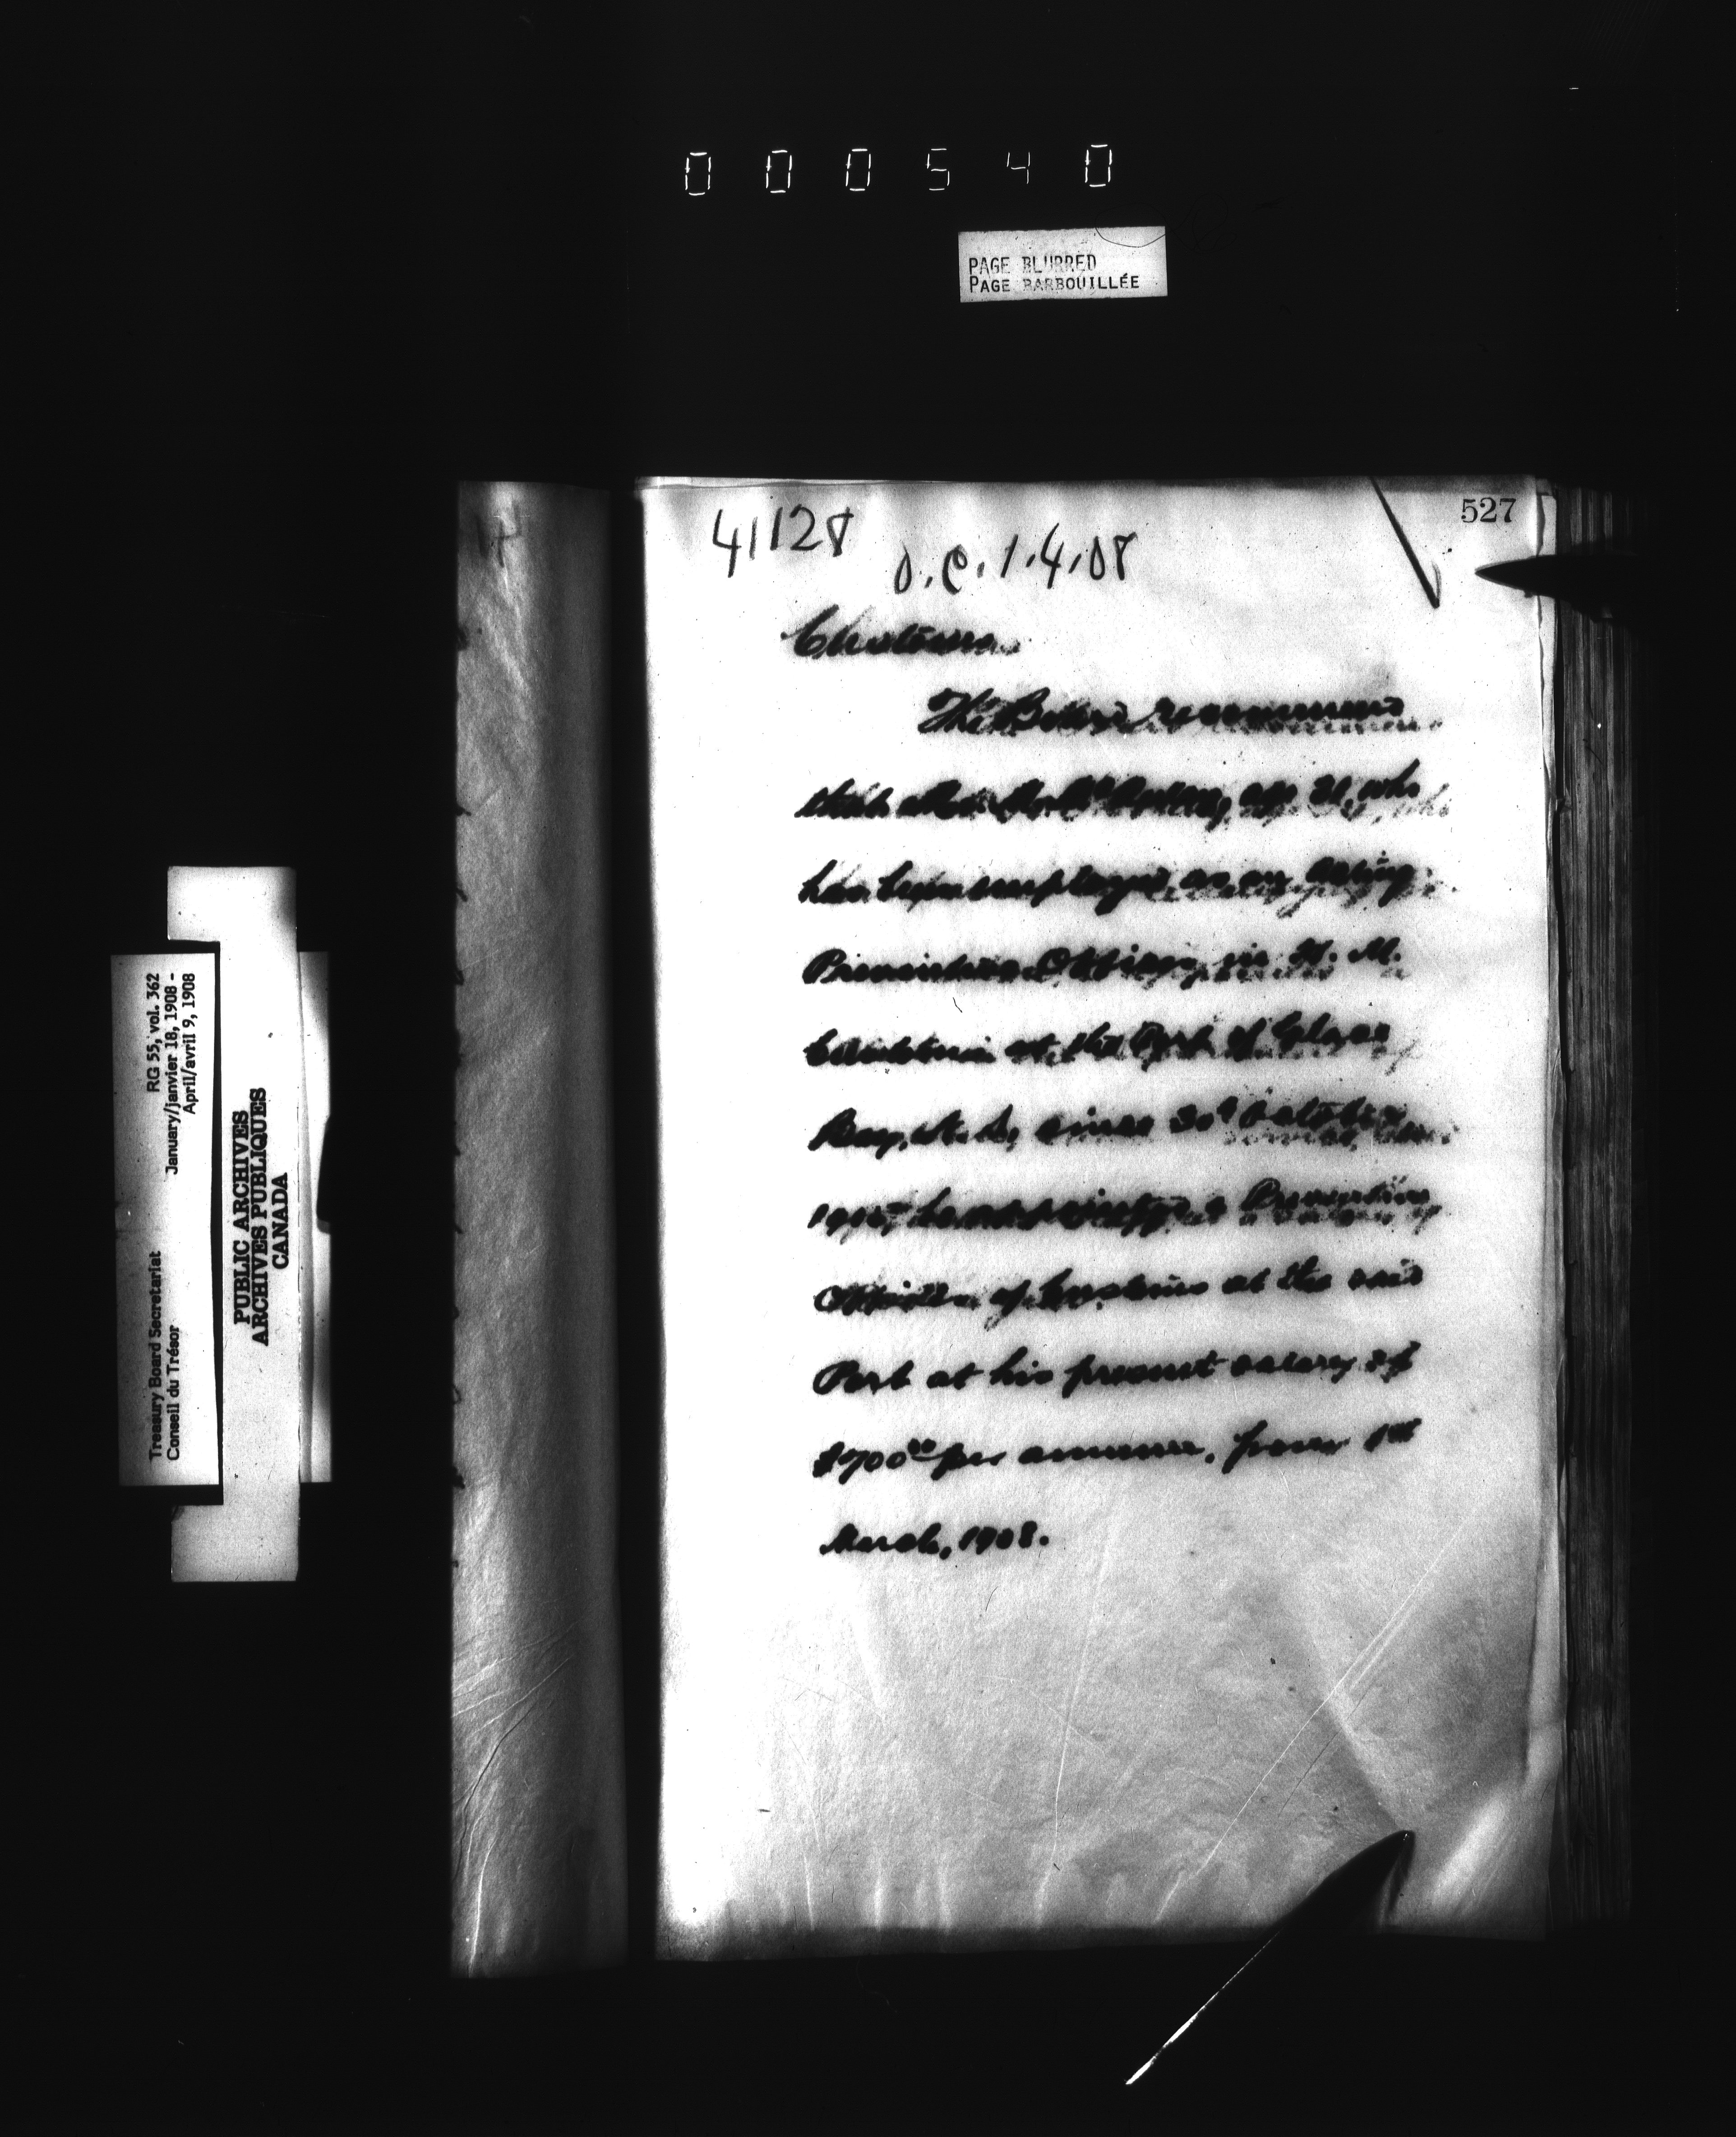 000540
PAGE BLURRED
PAGE BARBOUILLÉE
527
41128
O.C. 1.4.08
Customs
The Board recommend
that Mr. age who
has been employed as an Acting
Preventive Officer in H. M.
Customs at the Port of Glace
Bay, N. S., since 30th October
1905, be appointed a Preventive
Officer of Customs at the said
Port at his present salary of
$700 00 per annum, from 1st
March, 1908.
Treasury Board Secretariat RG 55, vol. 362
Conseil du Trésor January/janvier 18, 1908 -
April/avril 9, 1908
PUBLIC ARCHIVES
ARCHIVES PUBLIQUES
CANADA